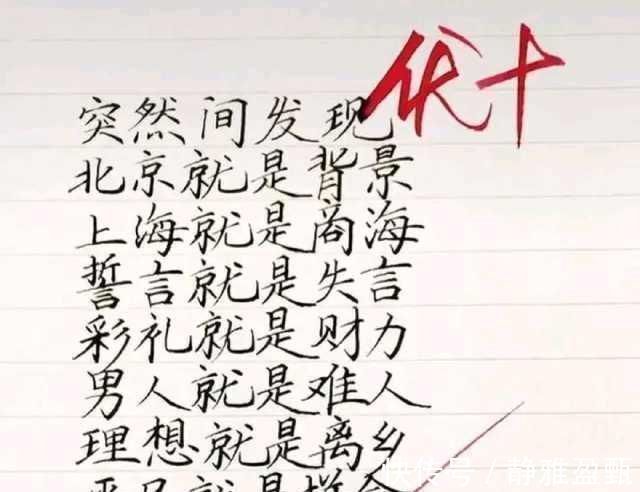 优+
突然间发现
北京就是背景
上海就是商海
誓言就是失言
彩礼就是财力
男人就是难人
理想就是离乡
快传号 / 静雅盈甄